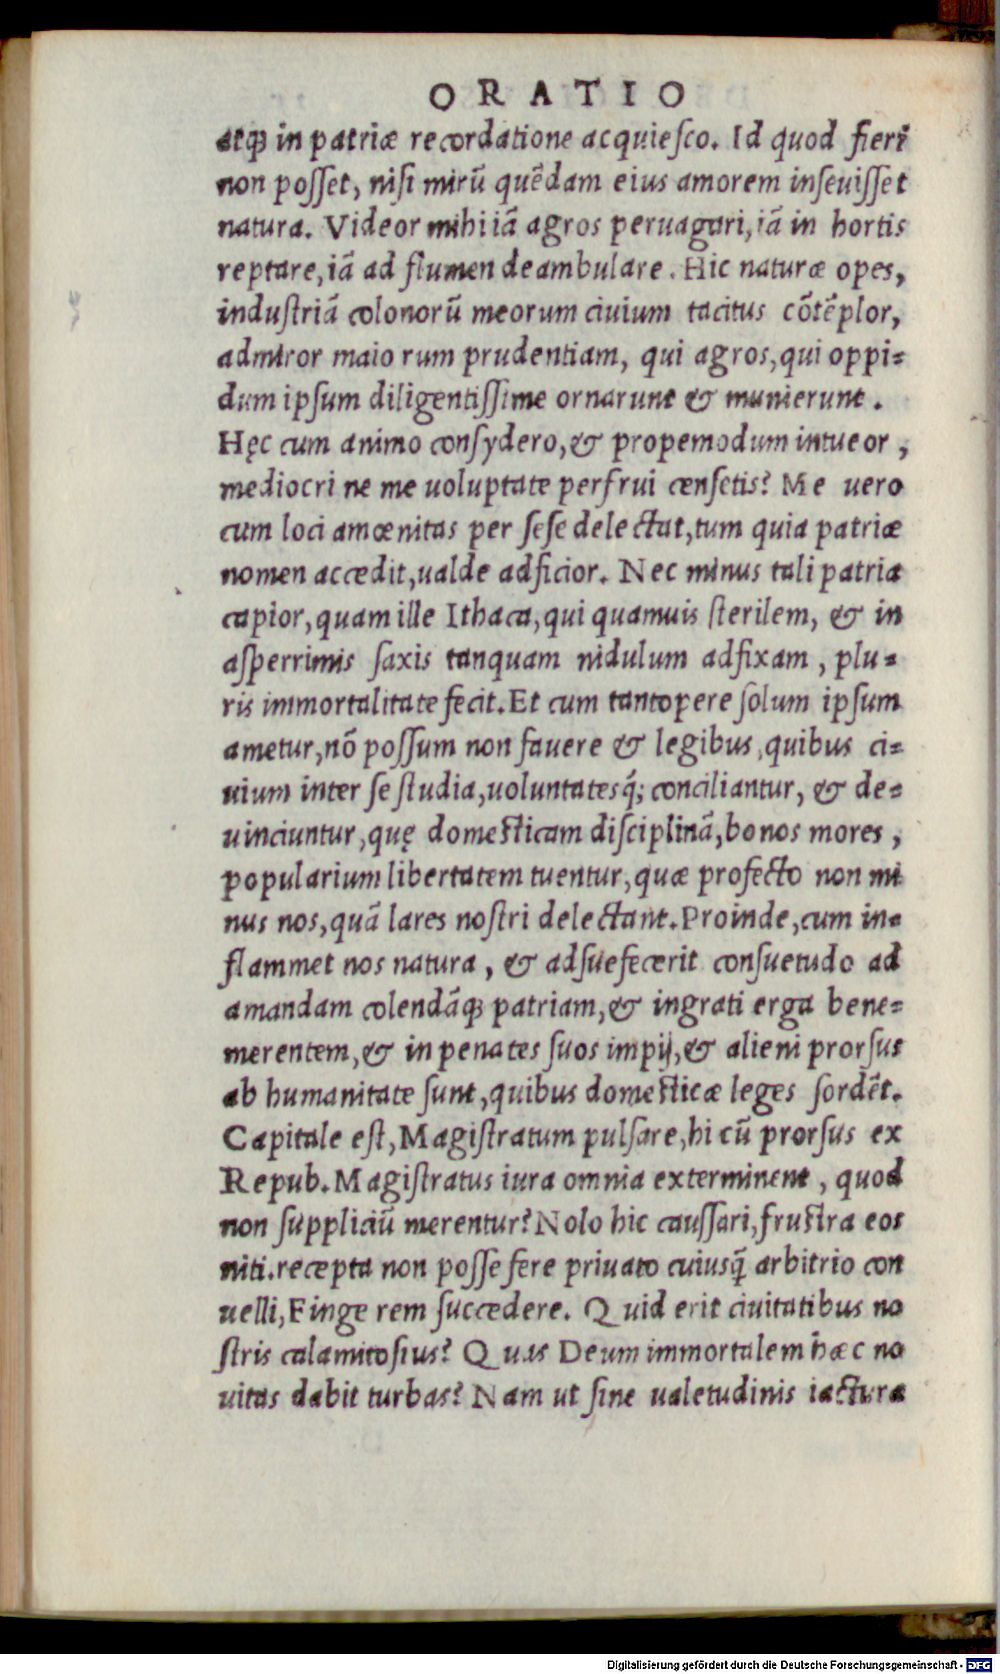 ORATIO
atqꝫ in patriæ recordatione acquieſco. Id quod fieri
non poſſet, niſi mirū quēdam eius amorem inſeuiſſet
natura. Videor mihi iā agros peruagari, iā in hortis
reptare, iā ad flumen deambulare. Hic naturæ opes,
induſtriā colonorū meorum ciuium tacitus cōtēplor,
admiror maiorum prudentiam, qui agros, qui oppi-
dum ipſum diligentiſſime ornarunt & munierunt.
Hęc cum animo conſydero, & propemodum intueor,
mediocri ne me uoluptate perfrui cenſetis? Me uero
cum loci amœnitas per ſeſe delectat, tum quia patriæ
nomen accedit, ualde adficior. Nec minus tali patria
capior, quam ille Ithaca, qui quamuis ſterilem, & in
aſperrimis ſaxis tanquam nidulum adfixam, plu-
ris immortalitate fecit. Et cum tantopere ſolum ipſum
ametur, nō poſſum non fauere & legibus, quibus ci-
uium inter ſe ſtudia, uoluntatesq́; conciliantur, & de-
uinciuntur, quę domeſticam diſciplinā, bonos mores,
popularium libertatem tuentur, quæ profecto non mi
nus nos, quā lares noſtri delectant. Proinde, cum in-
flammet nos natura, & adſuefecerit conſuetudo ad
amandam colendāqꝫ patriam, & ingrati erga bene-
merentem, & in penates ſuos impij, & alieni prorſus
ab humanitate ſunt, quibus domeſticæ leges ſordēt.
Capitale eſt, Magiſtratum pulſare, hi cū prorſus ex
Repub. Magiſtratus iura omnia exterminent, quod
non ſuppliciū merentur? Nolo hic cauſſari, fruſtra eos
niti. recepta non poſſe fere priuato cuiusq̃ arbitrio con
uelli, Finge rem ſuccedere. Quid erit ciuitatibus no
ſtris calamitoſius? Quas Deum immortalem hæc no
uitas dabit turbas? Nam ut ſine ualetudinis iactura
Digitalisierung gefördert durch die Deutsche Forschungsgemeinschaft - DFG